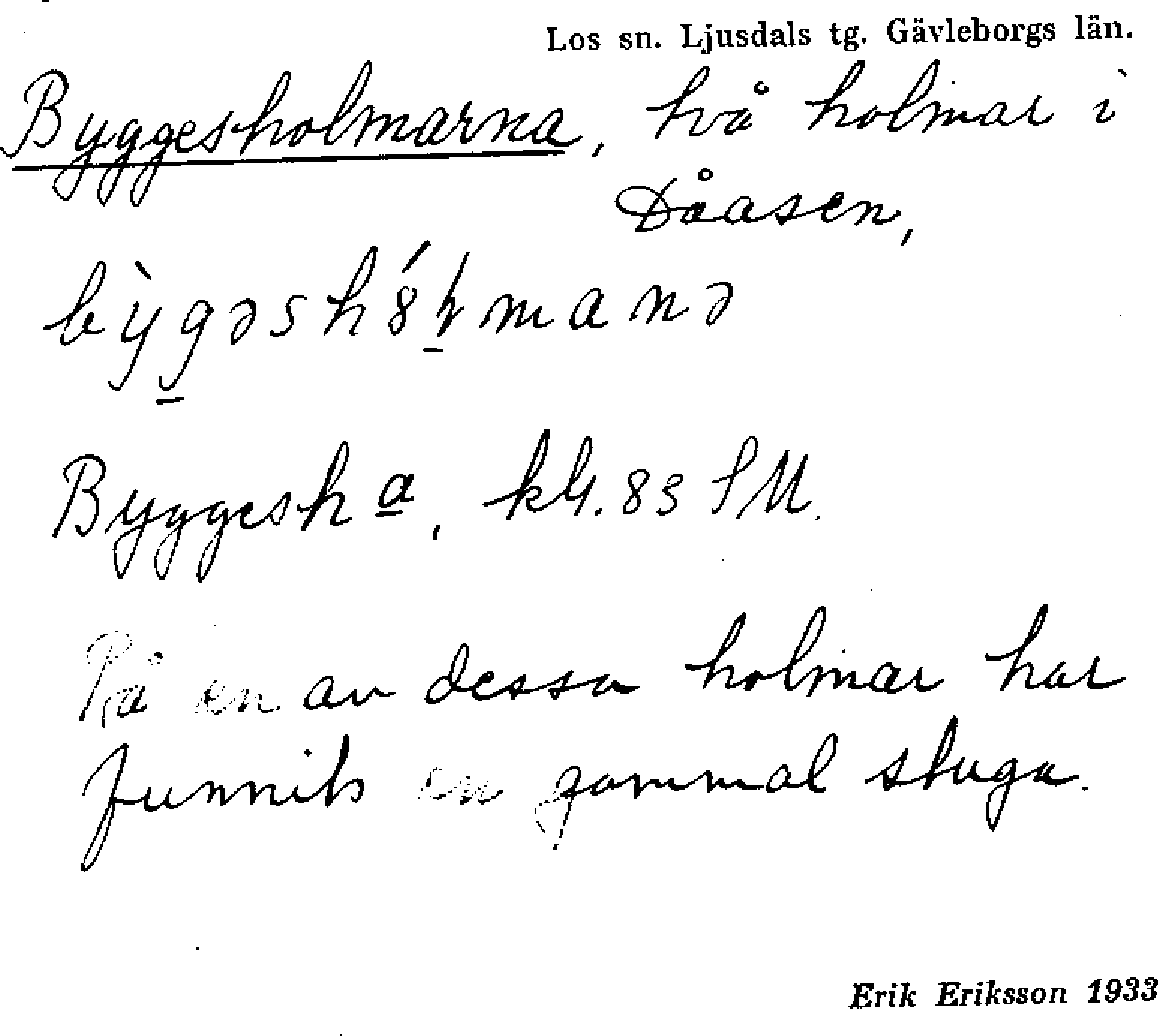 Los sn. Ljusdals tg. Gävleborgs län.
Byggesholmarna, två holmar i
Dåasen,
Byggesh a, kbl. 83 SM.
På en av dessa holmar har
funnits en gammal stuga.
Erik Eriksson 1933